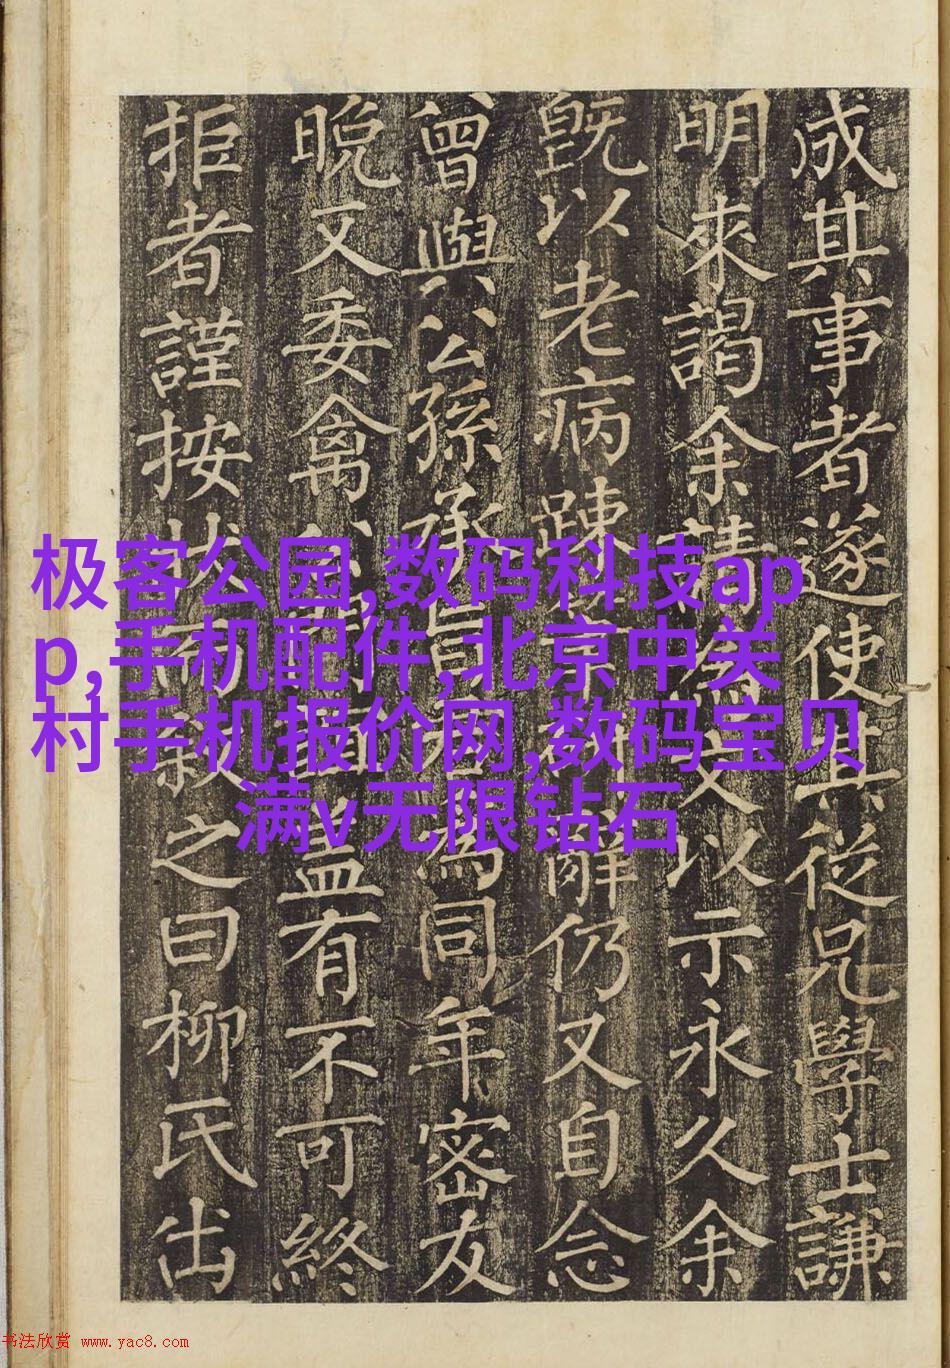 成其事者遂使其從兄學士謙
明來謁余請文以示永久余
既以老病踈辭仍又自念
曾與公孫承旨為同年密友
晚又委禽盖有不可終
拒者謹按狀而叙之曰柳氏出
极客公园,数码科技ap
p,手机配件,北京中关
村手机报价网,数码宝贝
满v无限钻石
书法欣赏 www.yac8.com